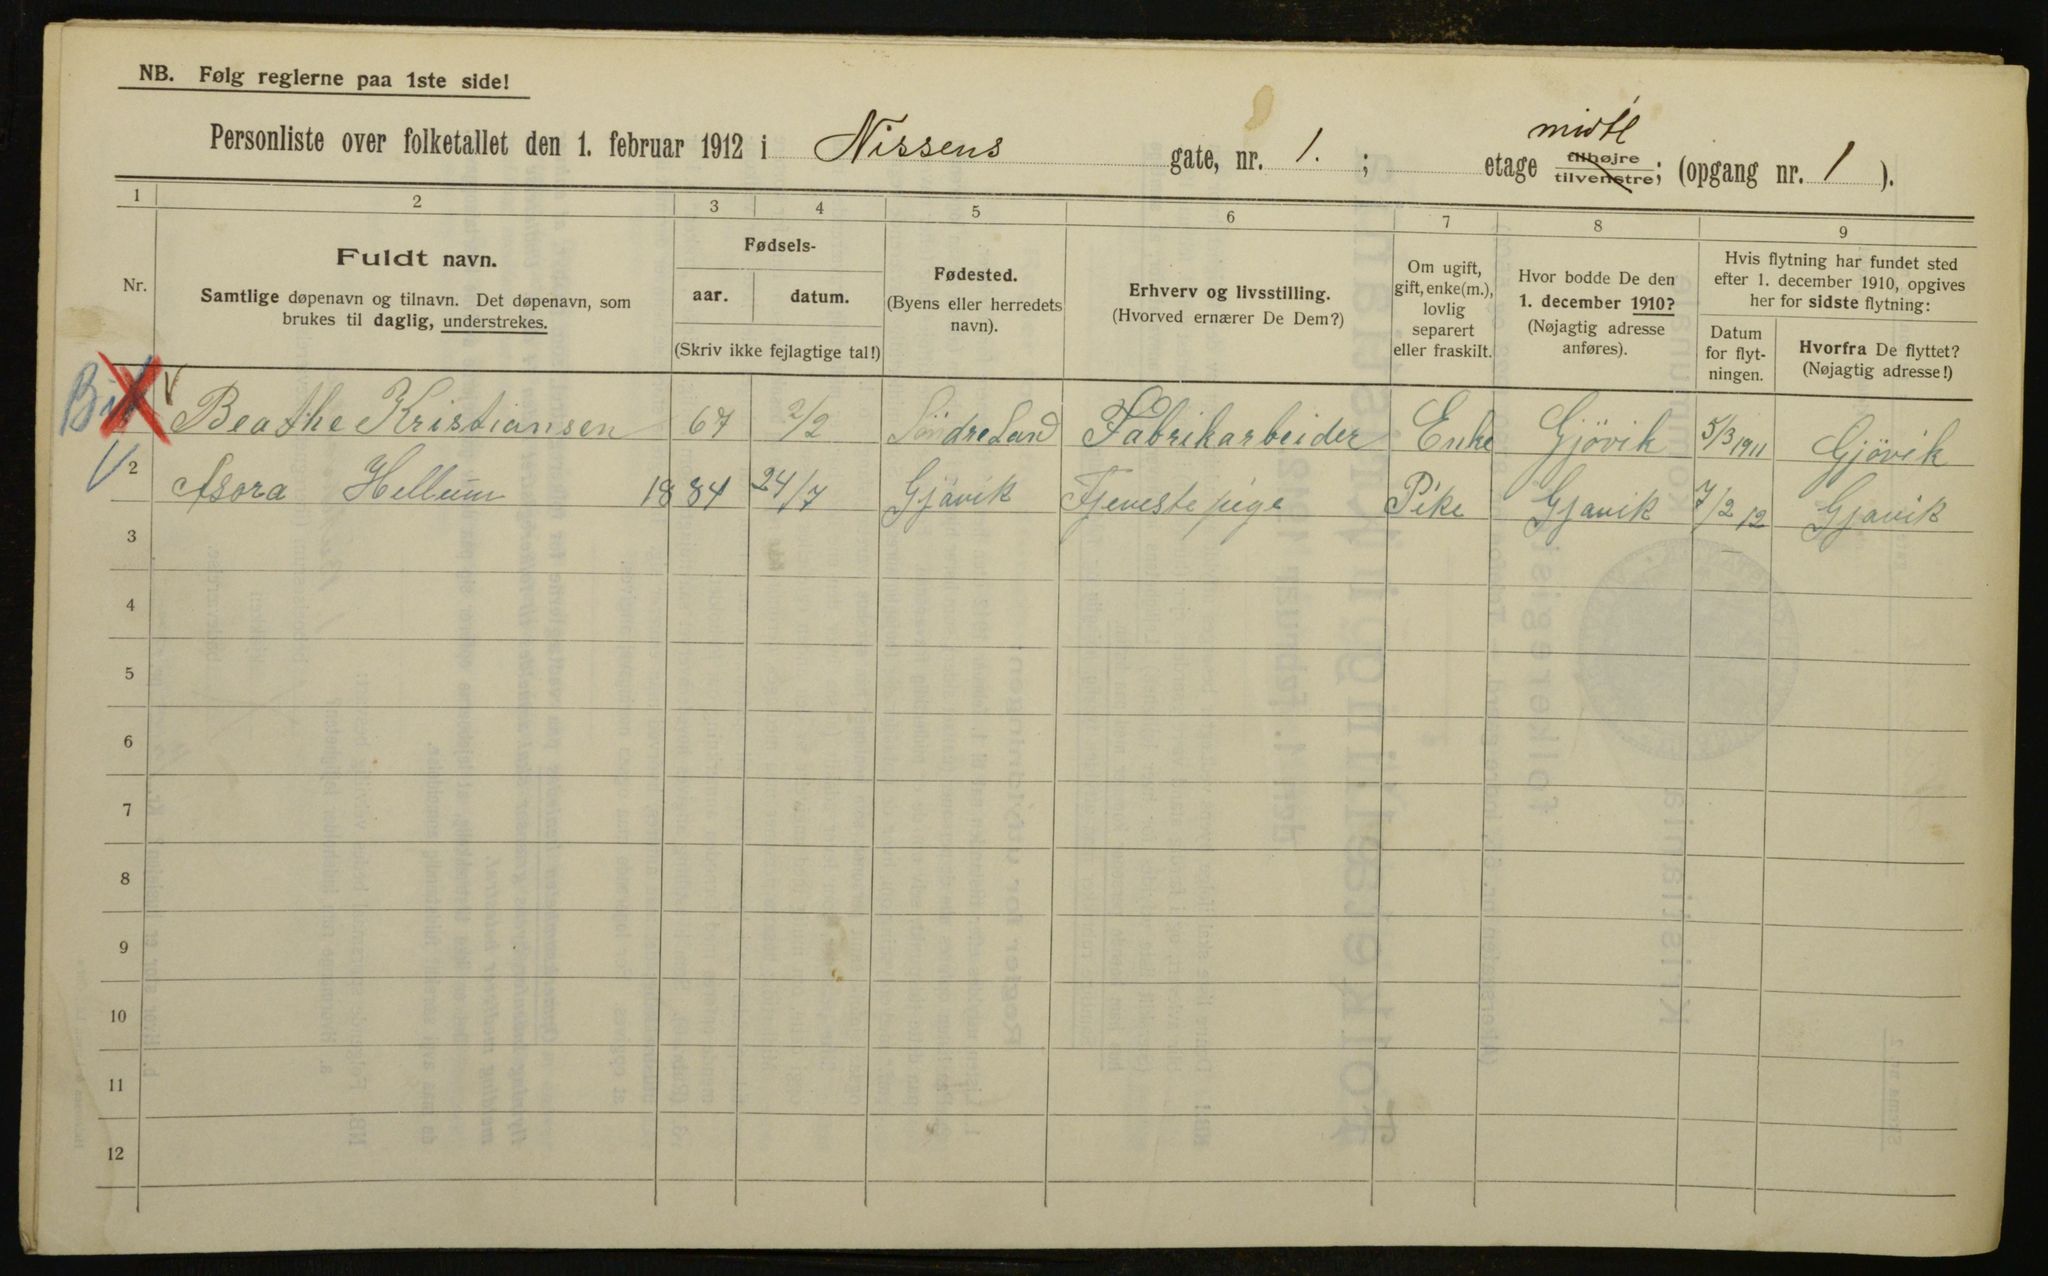 NB. Følg reglerne paa 1ste side!
Personliste over folketallet den 1. februar 1912 i Nissens gate, nr. 1. ; etage tilhøjre tilvenstre; midtl (opgang nr. 1 ).
1 2 3 4 5 6 7 8 9
Nr.
Fuldt navn.
Samtlige døpenavn og tilnavn. Det døpenavn, som
brukes til daglig, understrekes.
Fødsels-
aar. datum.
(Skriv ikke fejlagtige tal!)
Fødested.
(Byens eller herredets
navn).
Erhverv og livsstilling.
(Hvorved ernærer De Dem?)
Om ugift,
gift, enke(m.),
lovlig
separert
eller fraskilt.
Hvor bodde De den
1. december 1910?
(Nøjagtig adresse
anføres).
Hvis flytning har fundet sted
efter 1. december 1910, opgives
her for sidste flytning:
Datum
for flyt-
ningen.
Hvorfra De flyttet?
(Nøjagtig adresse!)
Beathe Kristiansen 67 2/2 Søndre Land Fabrikarbeider Enke Gjövik 5/3 1911 Gjövik
2 Asora Hellum 1884 24/7 Gjøvik Tjeneste pige Pike Gjøvik 7/2 12 Gjøvik
3
4
5
6
7
8
9
10
11
12